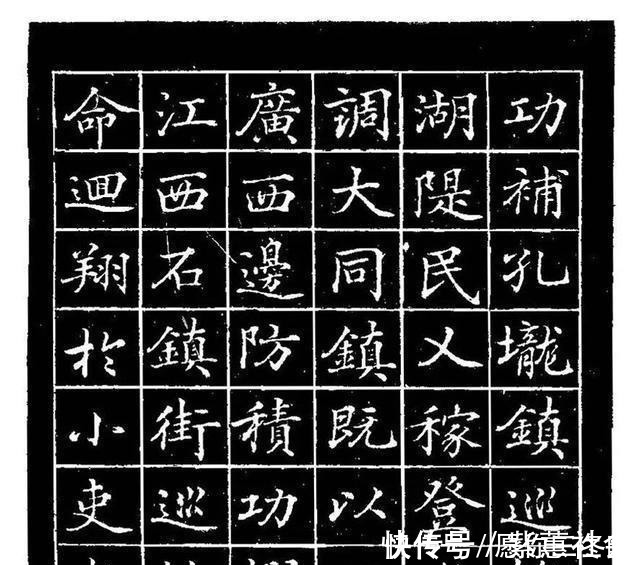 功補孔壠鎮巡
湖隄民乂稼登
調大同鎮既以
廣西邊防積功
江西石鎮街巡
命迴翔於小吏
快传号/